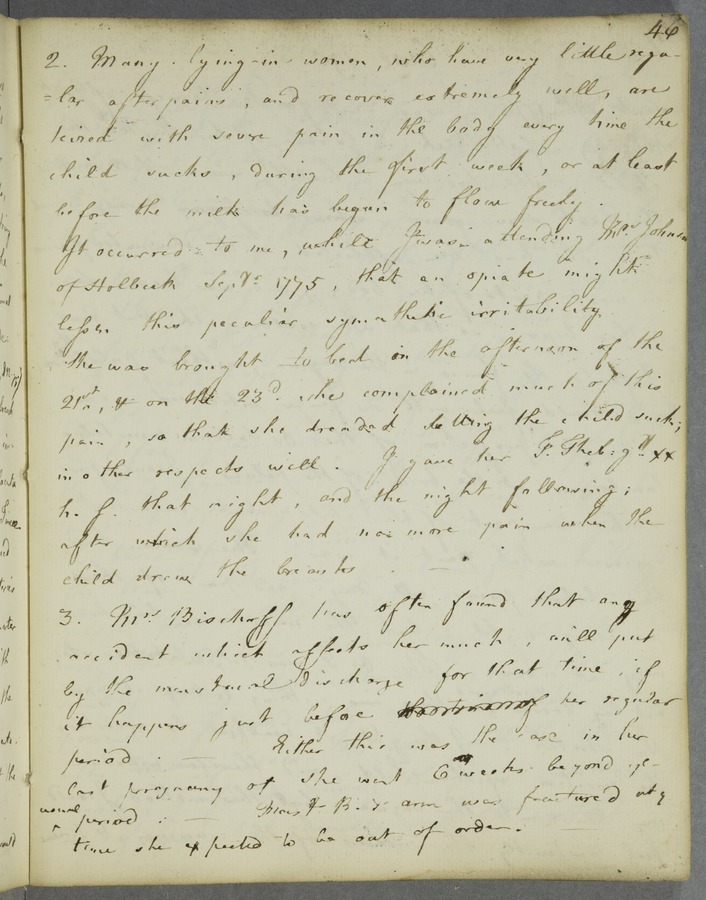 46
2. Many lying-in women, who have very little regu-
=lar after pains, and recover extremely well, are
teized with severe pain in the body every time the
child sucks, during the first week, or at least
before the milk has begun to flow freely.
It occurred to me, whilst I was attending Mrs. Johnson
of Holbeck Septr. 1775, that an opiate might
lessen this peculiar sympathetic irritability.
She was brought to bed in the afternoon of the
21st, & on the 23d. she complained much of this
pain, so that she dreaded letting the child suck;
in other respects well. I gave her T. Theb: gtt xx
h. s. that night, and the night following;
after which she had no more pain when the
child drew the breasts. —
3. Mrs. Bischoff has often found that any
accident which affects her much, will put
by the menstrual discharge for that time, if
it happens just before her regular
period. — Either this was the case in her
last pregnancy or she went 6 weeks beyond ye
usual period. — Mastr B.'s arm was fractured at ye
time she expected to be out of order. —